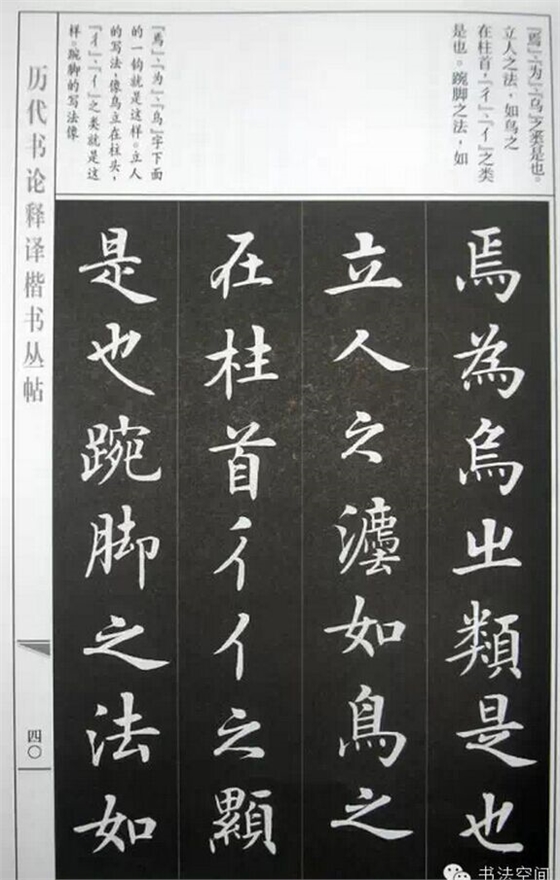 『焉』、『为』、『乌』之类是也。
立人之法，如鸟之
在柱首，『彳』、『亻』之类
是也。踠脚之法，如
『焉』、『为』、『乌』字下面
的一钩就是这样。立人
的写法，像鸟立在柱头，
『彳』、『亻』之类就是这
样。踠脚的写法像
焉為烏㞢類是也
立人之灋如鳥之
在柱首彳亻之顯
是也踠脚之法如
历代书论释译楷书丛帖
四〇
书法空间